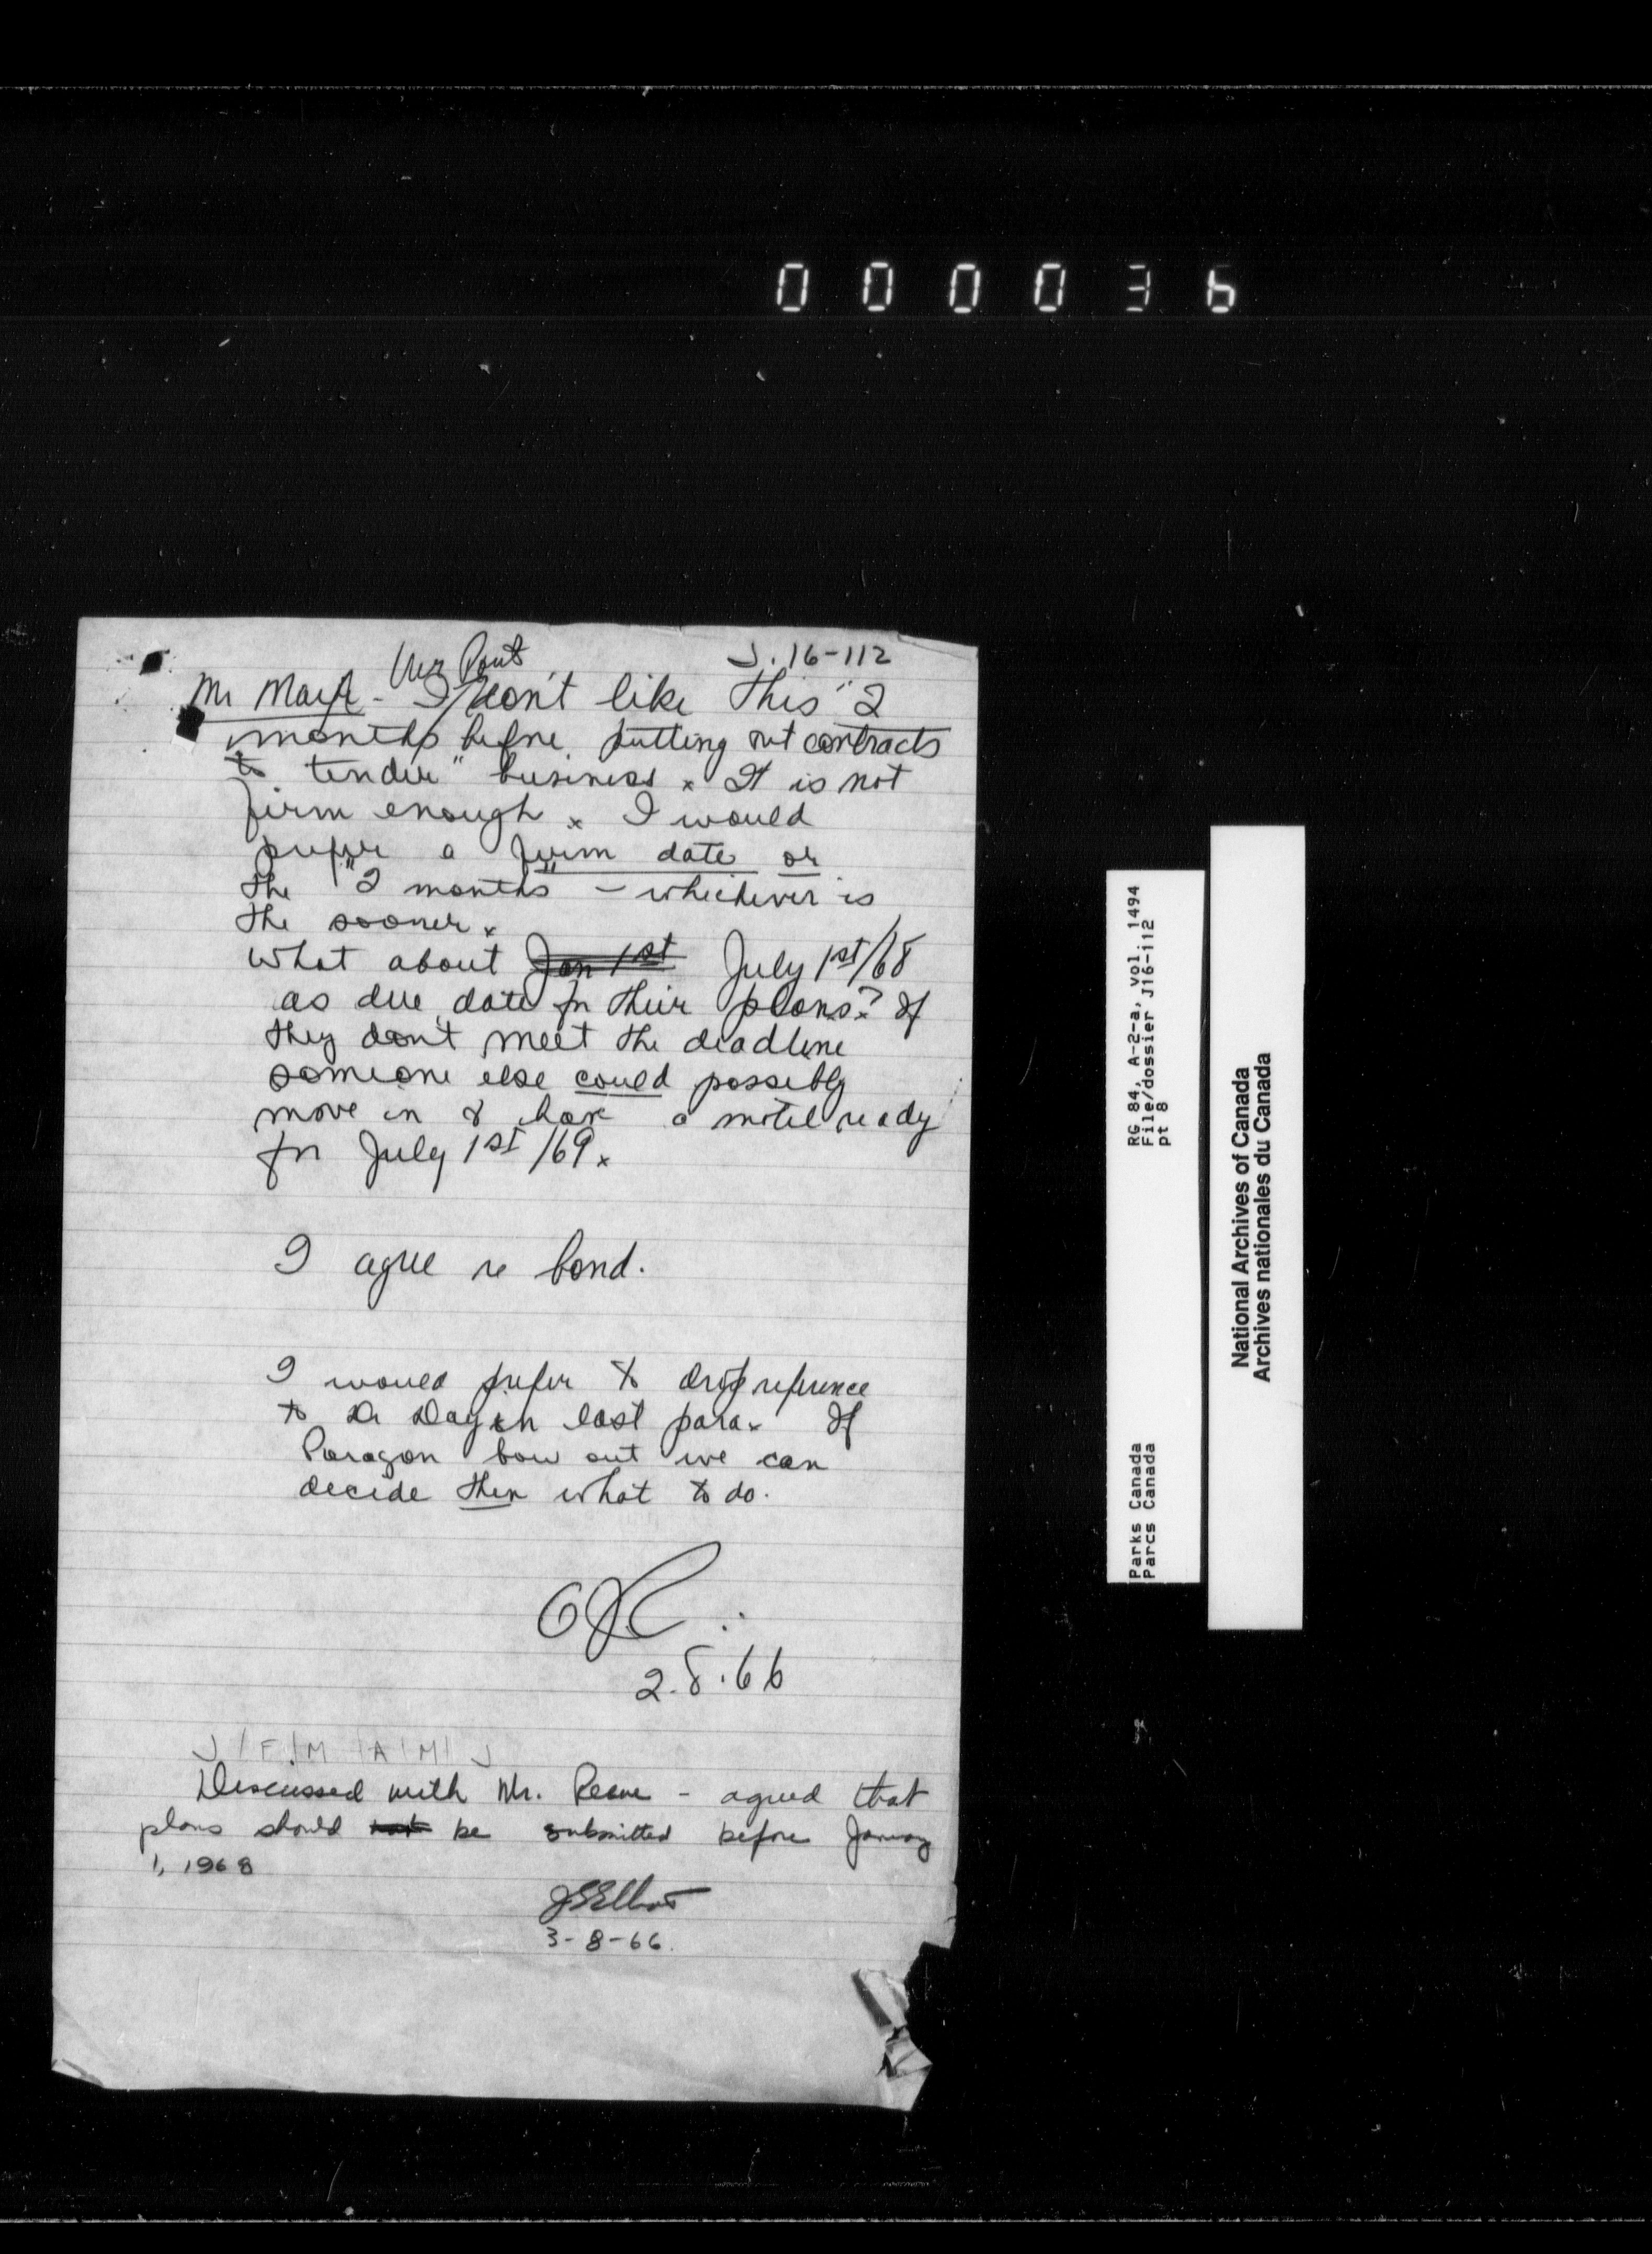 000036
J.16-112
Mr - I don't like this "2
months before putting out contracts
to tender" business x It is not
firm enough x I would
prefer a firm date or
the "2 months" - whichever is
the sooner x
What about Jan 1st July 1st/68
as due date for their plans? If
they don't meet the deadline
someone else could possibly
move in & have a motel ready
for July 1st/69 x
I agree re bond.
I would prefer to drop reference
to Dr Day in last para x If
Paragon bow out we can
decide then what to do.
2.8.66
J / F / M / A / M / J
Discussed with Mr. Reeve - agreed that
plans should not be submitted before January
1, 1968
JSElliot
3-8-66.
Parks Canada RG 84, A-2-a, vol. 1494
Parcs Canada File/dossier J16-112
pt 8
National Archives of Canada
Archives nationales du Canada